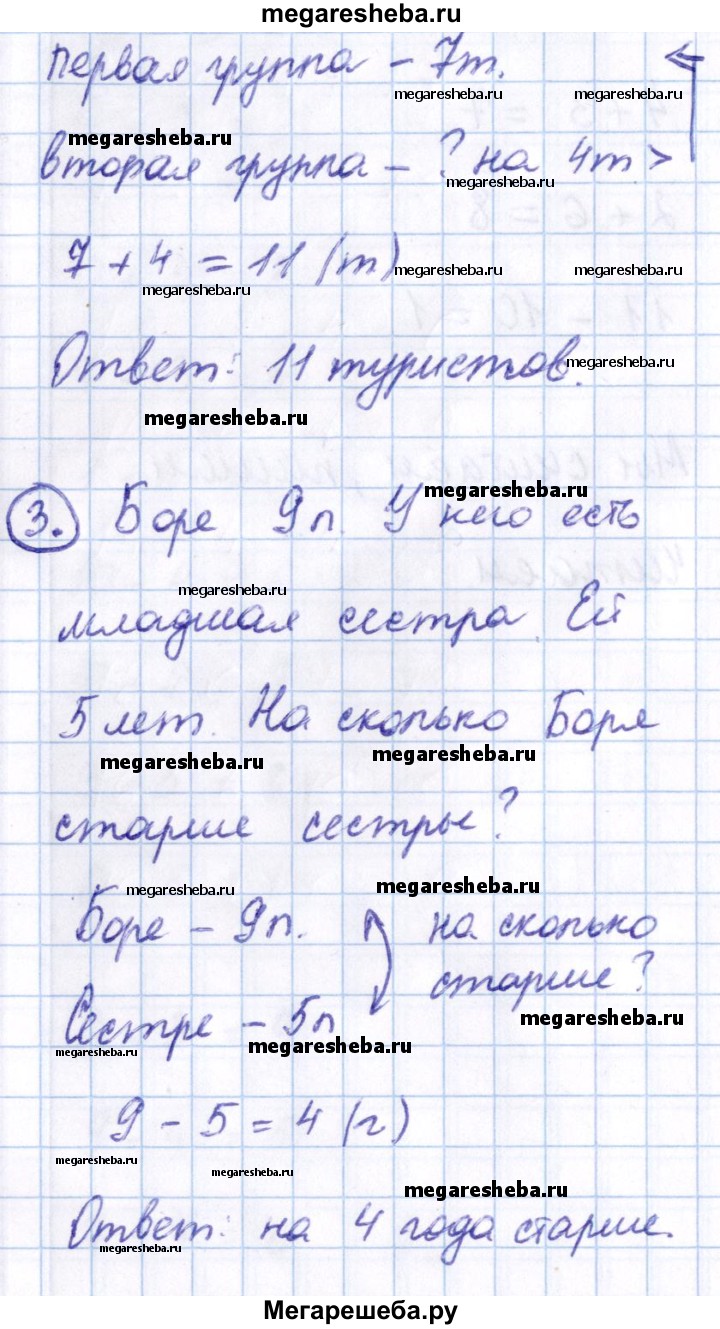 megaresheba.ru
первая группа – 7т.
megaresheba.ru megaresheba.ru
megaresheba.ru
вторая группа – ? на 4т >
megaresheba.ru
7 + 4 = 11 (т)
megaresheba.ru megaresheba.ru
megaresheba.ru
Ответ: 11 туристов.
megaresheba.ru
megaresheba.ru
megaresheba.ru
3. Боре 9л. У него есть
megaresheba.ru
младшая сестра. Ей
5 лет. На сколько Боря
megaresheba.ru megaresheba.ru
старше сестры?
megaresheba.ru megaresheba.ru
Боре – 9л. на сколько
старше?
Сестре – 5л
megaresheba.ru
megaresheba.ru megaresheba.ru
9 – 5 = 4 (г)
megaresheba.ru megaresheba.ru
megaresheba.ru
Ответ: на 4 года старше.
megaresheba.ru
Мегарешеба.ру